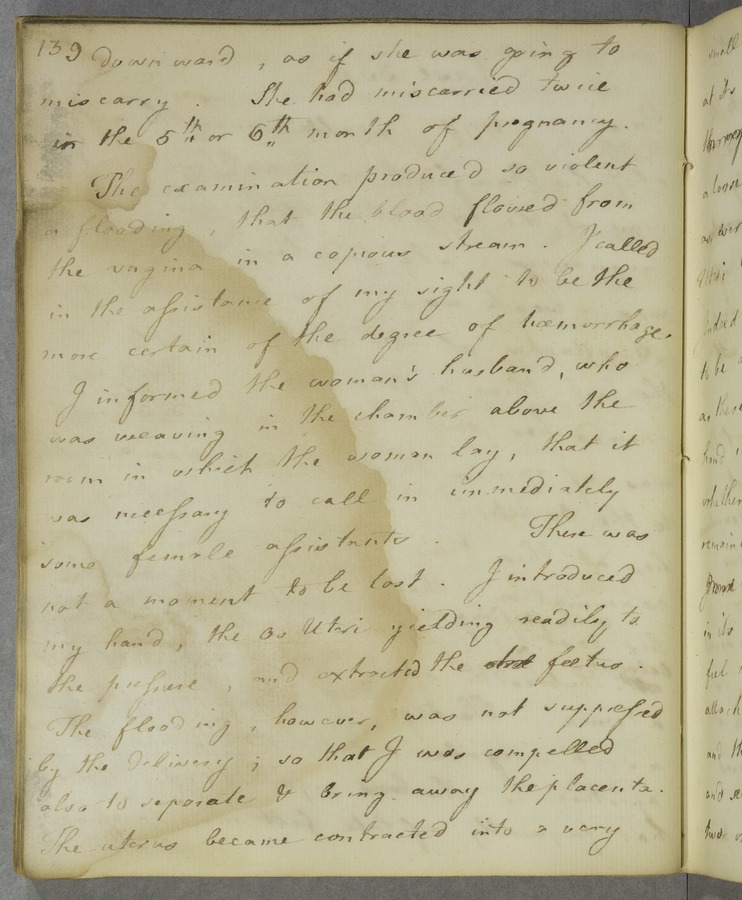 139
downward, as if she was going to
miscarry. She had miscarried twice
in the 5th or 6th month of pregnancy.
The examination produced so violent
a flooding, that the blood flowed from
the vagina in a copious stream. I called
in the assistance of my sight to be the
more certain of the degree of hæmorrhage.
I informed the woman's husband, who
was weaving in the chamber above the
room in which the woman lay, that it
was necessary to call in immediately
some female assistants. There was
not a moment to be lost. I introduced
my hand, the Os Uteri yielding readily to
the pressure, and extracted the foetus.
The flooding, however, was not suppressed
by the delivery; so that I was compelled
also to separate & bring away the placenta.
The uterus became contracted into a very
small
at its
a
Uteri
Indeed
to be
as these
hand
whether
remain
in its
feel
and th
and se